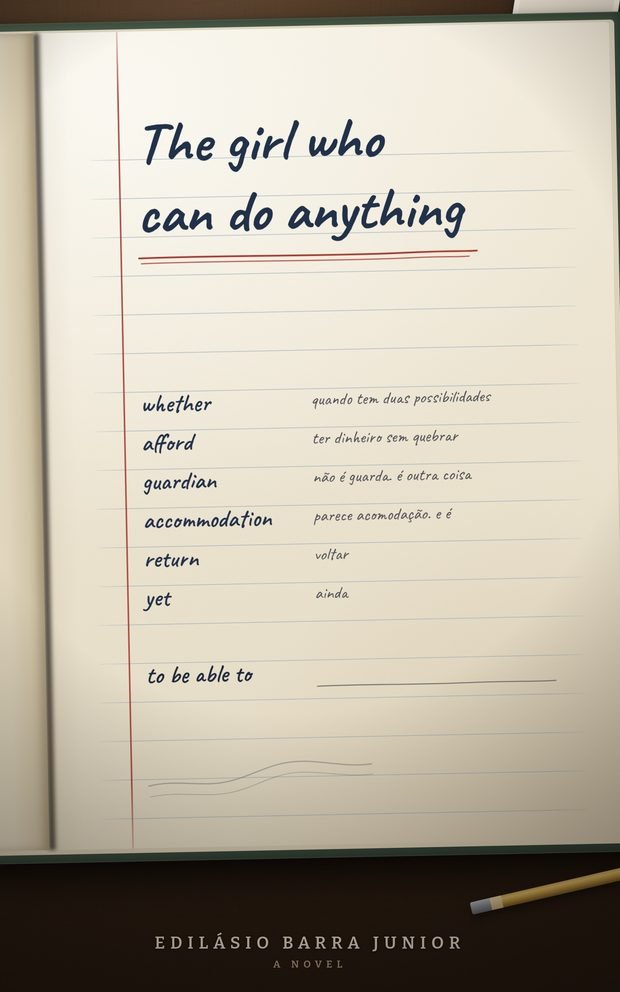 The girl who
can do anything
whether quando tem duas possibilidades
afford ter dinheiro sem quebrar
guardian não é guarda. é outra coisa
accommodation parece acomodação. e é
return voltar
yet ainda
to be able to
EDILÁSIO BARRA JUNIOR
A NOVEL